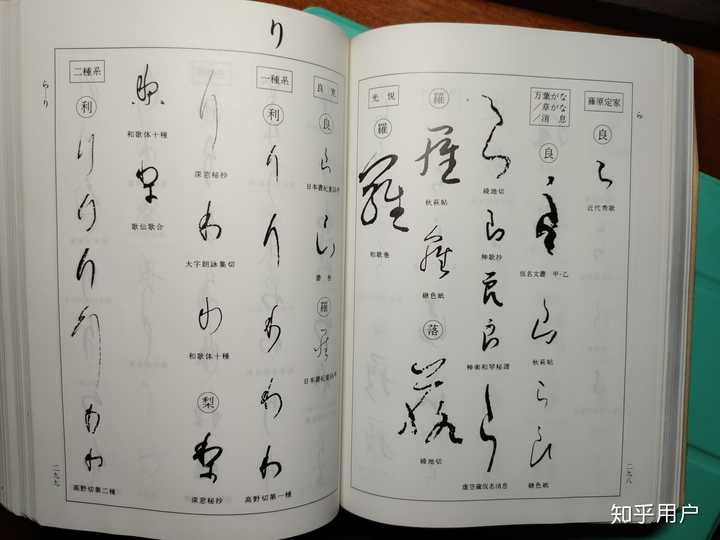 ら
藤原定家
良
近代秀歌
万葉がな
/草がな
/消 息
良
仮名文書 甲・乙
秋萩帖
継色紙
綾地切
神歌抄
神楽和琴秘譜
虚空蔵仮名消息
羅
秋萩帖
継色紙
落
綾地切
光悦
羅
和歌巻
二九八
り
良寛
良
羅
一種系
利
高野切第一種
深窓秘抄
大字朗詠集切
和歌体十種
梨
深窓秘抄
和歌体十種
歌仙歌合
二種系
利
高野切第二種
らり
二九九
知乎用户